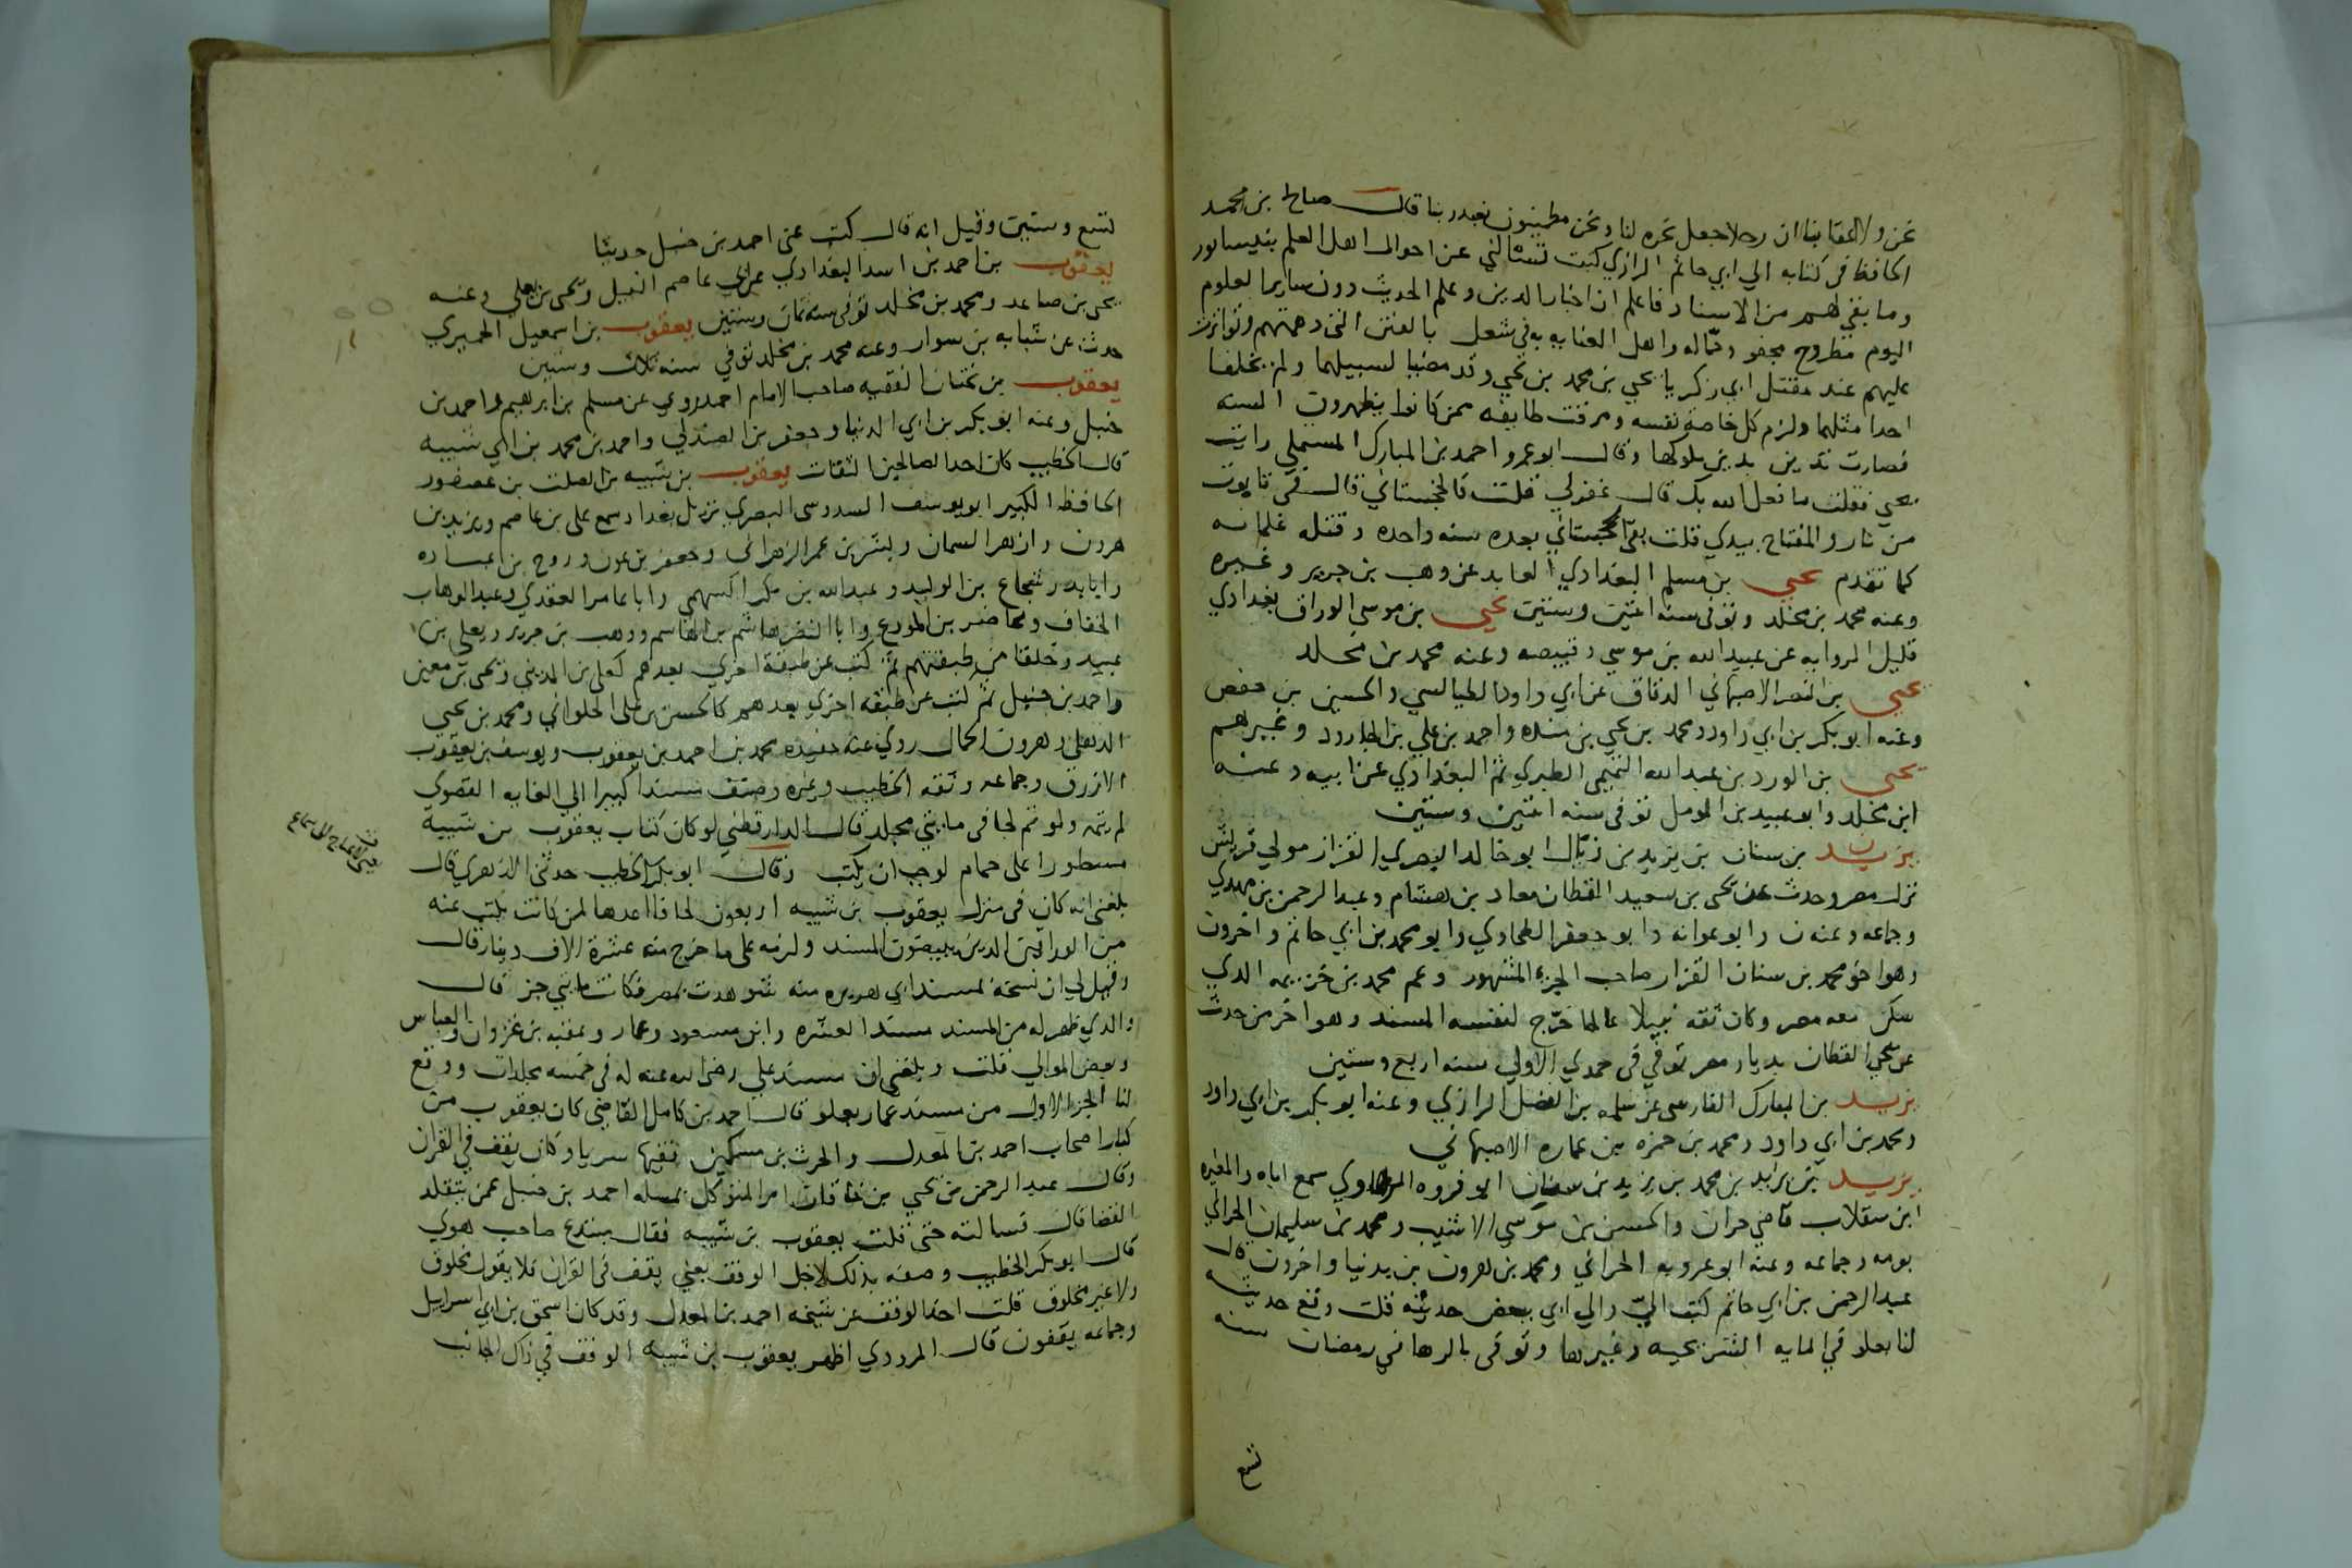 نحن ولا لعقابنا ان رجلا جعل نحره لنا ونحن مطمئنون نعبد ربنا قال صالح بن محمد
الحافظ في كتابه الي ابي حاتم الرازي كتبت تسالني عن احوال اهل العلم بنيسابور
وما بقي لهم من الاسناد فاعلم ان اخبار الدين وعلم الحديث دون ساير العلوم
اليوم مطروح مجفو وحماله واهل العنايه به في شغل بالفتن التي دهمتهم وتواترت
عليهم عند مقتل ابي زكريا يحيي بن محمد بن يحيي وقد مضيا لسبيلهما ولم يخلفا
احدا مثلهما ولزم كل خاصة نفسه ومرقت طايفه ممن كانوا يظهرون السنه
فصارت تدين بدين ملوكها وقال ابو عمرو احمد بن المبارك المستملي رايت
يحيي فقلت ما فعل الله بك قال غفر لي قلت فالخجستاني قال في تابوت
من نار والمفتاح بيدي قلت بقي الخجستاني بعده سنه واحده وقتله غلمانه
كما تقدم يحيي بن مسلم البغدادي العابد عن وهب بن جرير وغيره
وعنه محمد بن مخلد وتوفي سنه اثنين وستين يحيي بن موسي الوراق بغدادي
قليل الروايه عن عبيد الله بن موسي وقبيصه وعنه محمد بن مخلد
يحيي بن النضر الاصبهاني الدقاق عن ابي داود الطيالسي والحسين بن حفص
وعنه ابو بكر بن ابي داود ومحمد بن يحيي بن منده واحمد بن علي بن الجارود وغيرهم
يحيي بن الورد بن عبد الله التميمي الطبري ثم البغدادي عن ابيه وعنه
ابن مخلد وابو عبيد بن المومل توفي سنه اثنين وستين
يزيد بن سنان بن يزيد بن ذيال ابو خالد البصري القزاز مولي قريش
نزل مصر وحدث عن يحيي بن سعيد القطان معاد بن هشام وعبد الرحمن بن مهدي
وجماعه وعنه ن وابو عوانه وابو جعفر الطحاوي وابو محمد بن ابي حاتم واخرون
وهو اخو محمد بن سنان القزاز صاحب الجزء المشهور وعم محمد بن خزيمه الدي
سكن معه مصر وكان ثقه نبيلا عالما خرج لنفسه المسند وهو اخر من حدث
عن يحيي القطان بديار مصر توفي في جمدي الاولي سنه اربع وستين
يزيد بن المبارك الفارسي عن سلمه بن الفضل الرازي وعنه ابو بكر بن ابي داود
ومحمد بن ابي داود ومحمد بن حمزه بن عماره الاصبهاني
يزيد بن يزيد بن محمد بن يزيد بن سفيان ابو فروه الرهاوي سمع اباه والمغيره
ابن سقلاب قاضي حران والحسن بن موسي الاشيب ومحمد بن سليمان الحراني
بومه وجماعه وعنه ابو عروبه الحراني ومحمد بن هرون بن بدنيا واخرون قال
عبد الرحمن بن ابي حاتم كتب الي والي ابي ببعض حديثه قلت وقع حديثه
لنا بعلو في المايه الشريحيه وغيرها وتوفي بالرها في رمضان سنه
تسع
لتسع وستين وقيل انه قال كتب عني احمد بن حنبل حديثا
يعقوب بن احمد بن اسد البغدادي عن ابي عاصم النبيل ويحيي بن يعلي وعنه
يحيي بن صاعد ومحمد بن مخلد توفي سنه ثمان وستين يعقوب بن اسمعيل الحميري
حدث عن شبابه بن سوار وعنه محمد بن مخلد توفي سنه ثلاث وستين
يعقوب بن بختان الفقيه صاحب الامام احمد روي عن مسلم بن ابرهيم واحمد بن
حنبل وعنه ابو بكر بن ابي الدنيا وجعفر بن الصندلي واحمد بن محمد بن ابي شيبه
قال الخطيب كان احد الصالحين الثقات يعقوب بن شيبه بن الصلت بن عصفور
الحافظ الكبير ابو يوسف السدوسي البصري نزيل بغداد سمع علي بن عاصم ويزيد بن
هرون وازهر السمان وبشر بن عمر الزهراني وجعفر بن عون وروح بن عباده
وابا بدر شجاع بن الوليد وعبد الله بن بكر السهمي وابا عامر العقدي وعبد الوهاب
الخفاف ومحاضر بن المورع وابا النضر هاشم بن القاسم ووهب بن جرير ويعلي بن
عبيد وخلقا من طبقتهم ثم كتب عن طبقة اخري بعدهم كعلي بن المديني ويحيي بن معين
واحمد بن حنبل ثم كتب عن طبقه اخري بعدهم كالحسن بن علي الحلواني ومحمد بن يحيي
الدهلي وهرون الحمال روي عنه حفيده محمد بن احمد بن يعقوب ويوسف بن يعقوب
الازرق وجماعه وثقه الخطيب وغيره وصنف مسندا كبيرا الي الغايه القصوي
لم يتمه ولو تم لجا في مايتي مجلد قال الدارقطني لو كان كتاب يعقوب بن شيبه
مسطورا علي حمام لوجب ان يكتب وقال ابو بكر الخطيب حدثني الازهري قال
بلغني انه كان في منزل يعقوب بن شيبه اربعون لحافا اعدها لمن كان يبيت عنده
من الوراقين الدين يبيضون المسند ولزمه علي ما خرج منه عشرة الاف دينار قال
وقيل لي ان نسخة لمسند ابي هريره منه شوهدت بمصر فكانت مايتي جز قال
والدي ظهر له من المسند مسند العشره وابن مسعود وعمار وعتبه بن غزوان والعباس
وبعض الموالي قلت وبلغني ان مسند علي رضي الله عنه له في خمسه مجلدات ووقع
لنا الجز الاول من مسند عمار بعلو قال احمد بن كامل القاضي كان يعقوب من
كبار اصحاب احمد بن المعدل والحرث بن مسكين فقيها سريا وكان يقف في القران
وقال عبد الرحمن بن يحيي بن خاقان امر المتوكل بمسله احمد بن حنبل عمن يتقلد
القضا قال فسالته حتي قلت يعقوب بن شيبه فقال مبتدع صاحب هوي
قال ابو بكر الخطيب وصفه بذلك لاجل الوقف يعني يقف في القران فلا يقول مخلوق
ولا غير مخلوق قلت اخذ الوقف عن شيخه احمد بن المعدل وقد كان اسحق بن ابي اسرايل
وجماعه يقفون قال المروذي اظهر يعقوب بن شيبه الوقف في ذاك الجانب